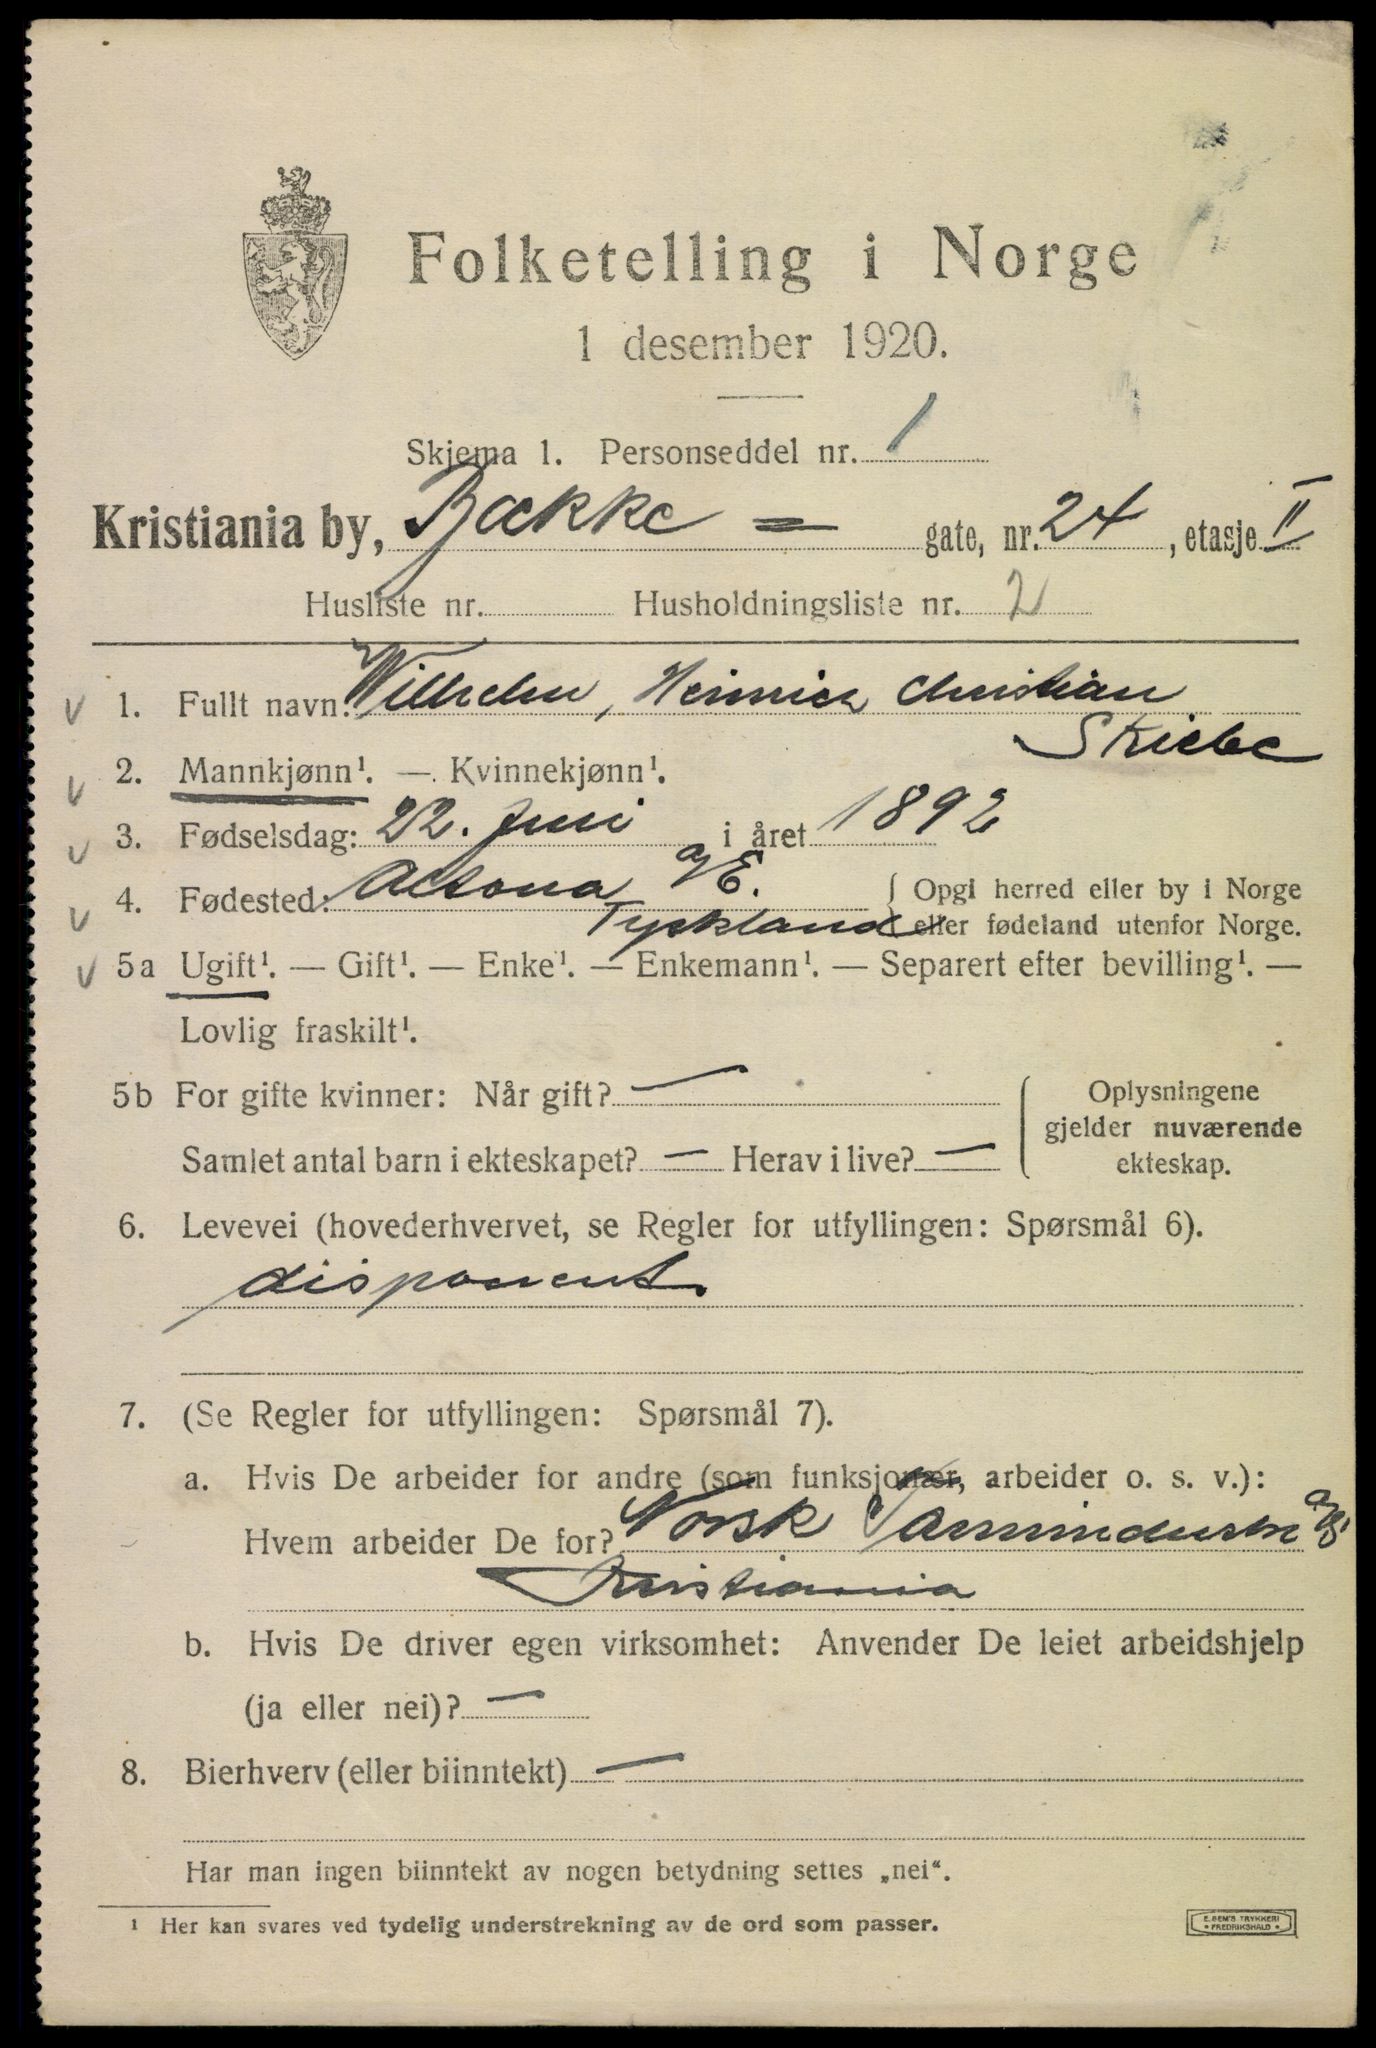 Folketelling i Norge
1 desember 1920.
Skjema 1. Personseddel nr. 1
Kristiania by, Bakke = gate, nr. 24, etasje II
Husliste nr. Husholdningsliste nr. 2
1. Fullt navn: Wilhelm, Heinrich Christian
Skiebe
2. Mannkjønn¹. — Kvinnekjønn¹.
3. Fødselsdag: 22. Juni i året 1892
4. Fødested: Altona a/E. { Opgi herred eller by i Norge
Tyskland eller fødeland utenfor Norge.
5a Ugift¹. — Gift¹. — Enke¹. — Enkemann¹. — Separert efter bevilling¹. —
Lovlig fraskilt¹.
5b For gifte kvinner: Når gift? — { Oplysningene
gjelder nuværende
Samlet antal barn i ekteskapet? — Herav i live? —
ekteskap.
6. Levevei (hovederhvervet, se Regler for utfyllingen: Spørsmål 6).
disponent
7. (Se Regler for utfyllingen: Spørsmål 7).
a. Hvis De arbeider for andre (som funksjonær, arbeider o. s. v.):
Hvem arbeider De for? Norsk a/s
Kristiania
b. Hvis De driver egen virksomhet: Anvender De leiet arbeidshjelp
(ja eller nei)? —
8. Bierhverv (eller biinntekt) —
Har man ingen biinntekt av nogen betydning settes „nei“.
¹ Her kan svares ved tydelig understrekning av de ord som passer.
E. SEM'S TRYKKERI
• FREDRIKSHALD •